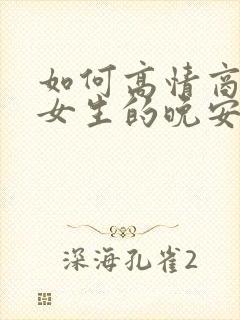 如何高情商
女生的晚安
深海孔雀2